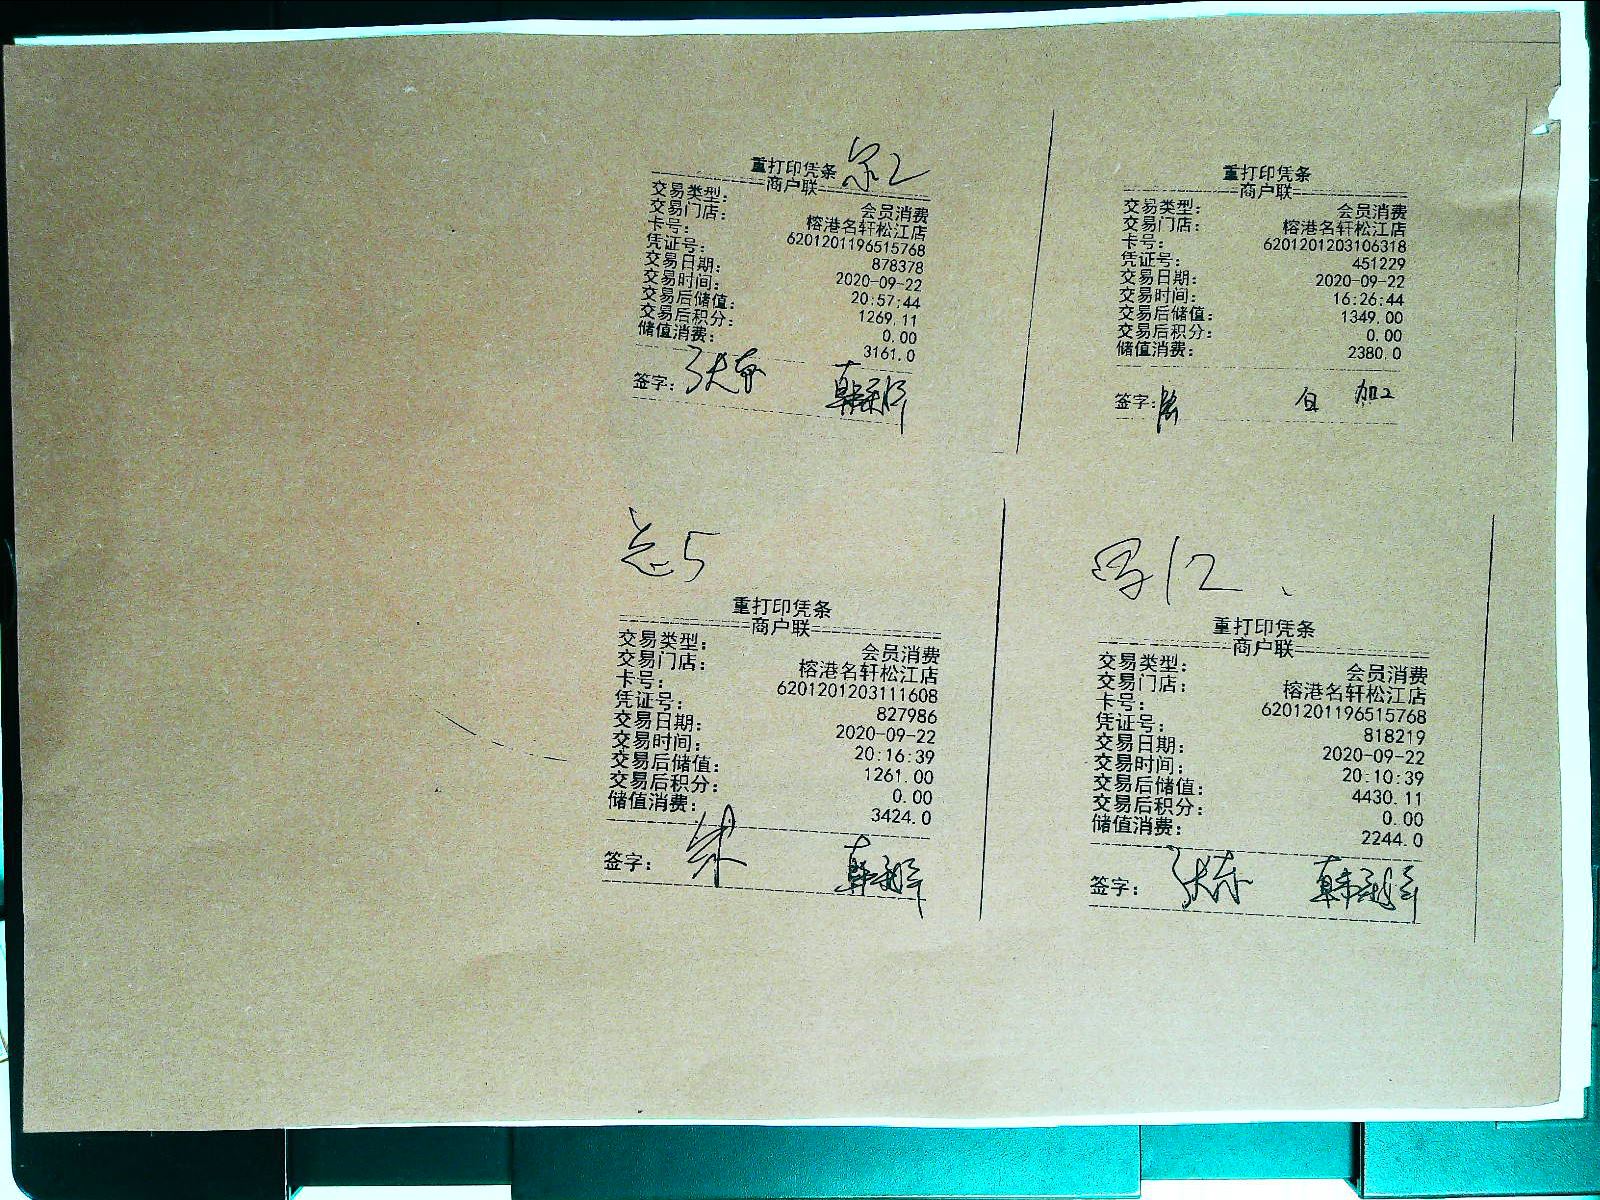 重打印凭条
商户联
交易类型： 会员消费
交易门店： 榕港名轩松江店
卡号： 6201201196515768
凭证号： 878378
交易日期： 2020-09-22
交易时间： 20:57:44
交易后储值： 1269.11
交易后积分： 0.00
储值消费： 3161.0
签字：
重打印凭条
商户联
交易类型： 会员消费
交易门店： 榕港名轩松江店
卡号： 6201201203106318
凭证号： 451229
交易日期： 2020-09-22
交易时间： 16:26:44
交易后储值： 1349.00
交易后积分： 0.00
储值消费： 2380.0
签字：
重打印凭条
商户联
交易类型： 会员消费
交易门店： 榕港名轩松江店
卡号： 6201201203111608
凭证号： 827986
交易日期： 2020-09-22
交易时间： 20:16:39
交易后储值： 1261.00
交易后积分： 0.00
储值消费： 3424.0
签字：
重打印凭条
商户联
交易类型： 会员消费
交易门店： 榕港名轩松江店
卡号： 6201201196515768
凭证号： 818219
交易日期： 2020-09-22
交易时间： 20:10:39
交易后储值： 4430.11
交易后积分： 0.00
储值消费： 2244.0
签字：